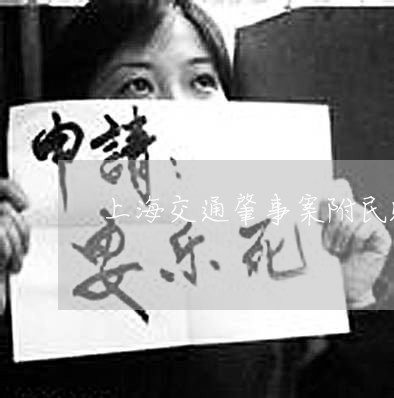 申請:
上海交通肇事案附民
要乐死